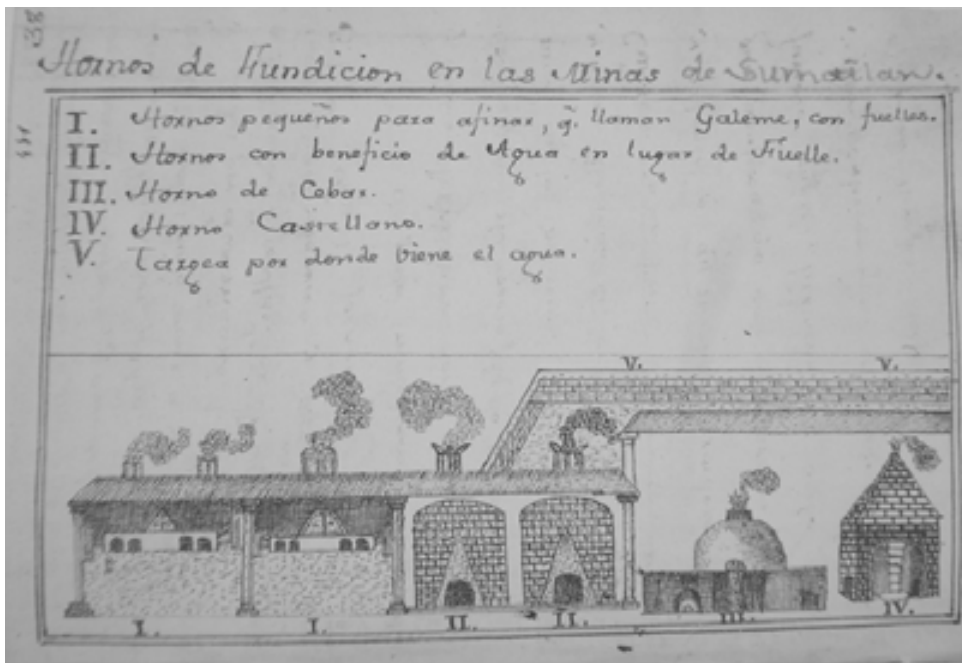 38
Hornos de Fundicion en las Minas de Sumatlan.
I. Hornos pequeños para afinar, q̃. llaman Galeme, con fuelles.
II. Hornos con beneficio de Agua en lugar de Fuelle.
III. Horno de Cebar.
IV. Horno Castellano.
V. Targea por donde viene el agua.
V. V.
I. I. II. II. III. IV.